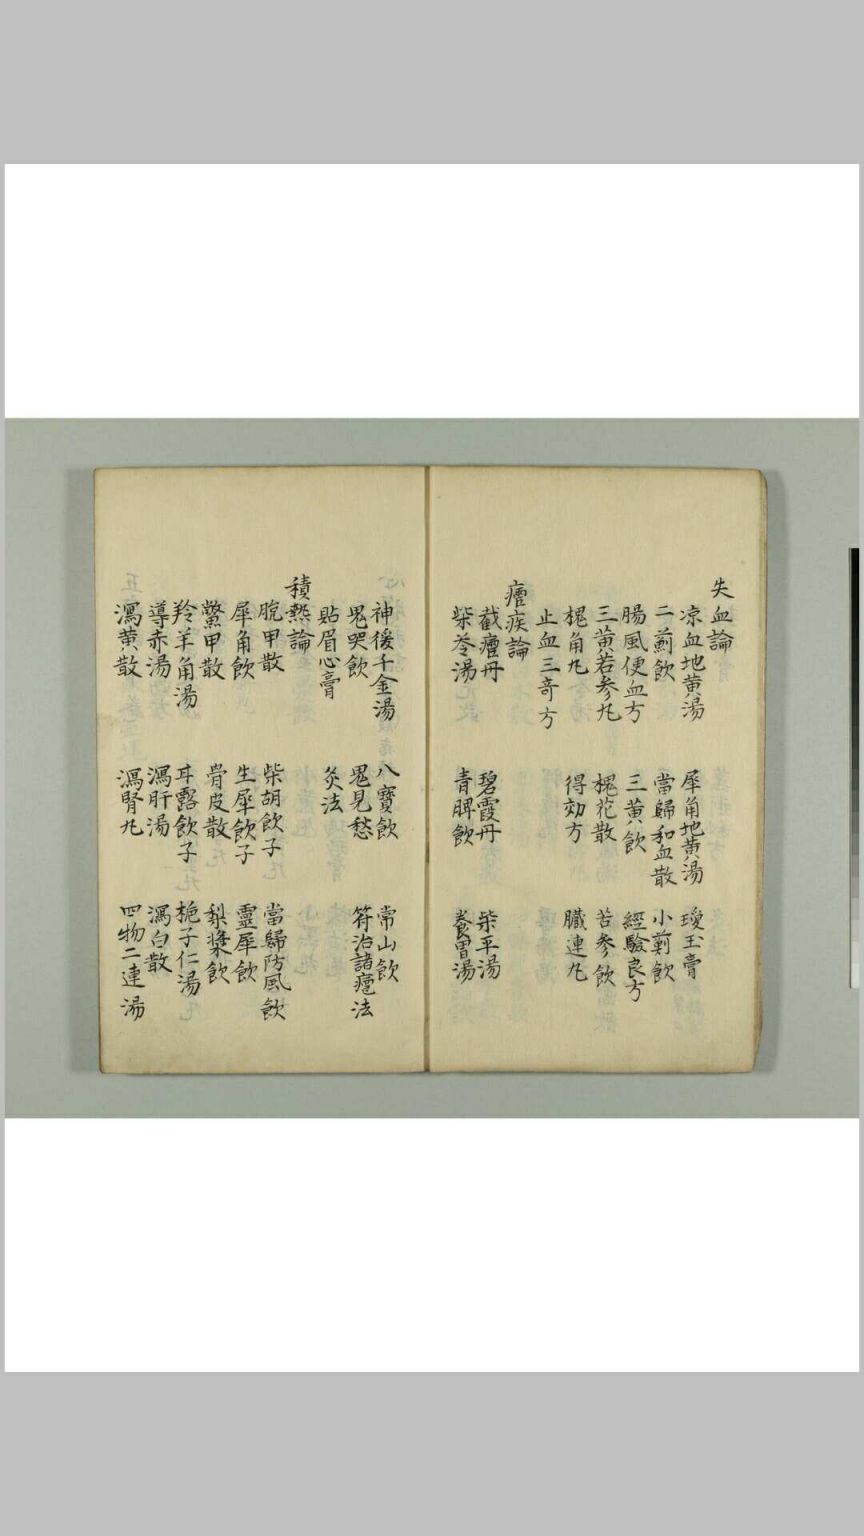 失血論
凉血地黄湯 犀角地黄湯 瓊玉膏
二薊飲 當歸和血散 小薊飲
腸風便血方 三黄飲 經驗良方
三黄若参丸 槐花散 苦参飲
槐角丸 得効方 臓連丸
止血三奇方
瘧疾論
截瘧丹 碧霞丹 柴平湯
柴苓湯 青脾飲 養胃湯
神援千金湯 八寶飲 常山飲
鬼哭飲 鬼見愁 符治諸瘧法
貼眉心膏 灸法
積熱論
脫甲散 柴胡飲子 當歸防風飲
犀角飲 生犀飲子 靈犀飲
鱉甲散 骨皮散 梨漿飲
羚羊角湯 耳露飲子 梔子仁湯
導赤湯 瀉肝湯 瀉白散
瀉黄散 瀉腎丸 四物二連湯